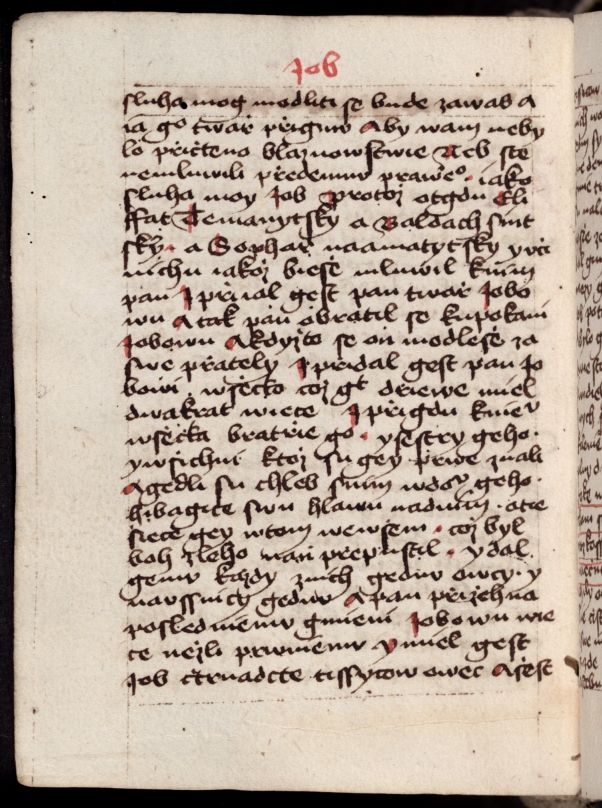 Job
sluha mog modliti se bude zawas A
ia go twař přigmu Aby wam neby
lo přičteno blaznowstwie Neb ste
nemluwili předemnu prawěo iako
sluha moy Job Protož otgdu Eli
ffat Temanytský a Baldach suit
ský a Sophar naamatytsky yvči
nichu iakož bieše mluwil knim
pan J přiial gest pan twař Jobo
wu A tak pan obratil se kupokani
Jobowu A kdyžto se on modleše za
swe přately J přidal gest pan Jo
bowi wšecko což gt dřiewe miel
dwakrat wiece J přigdu kniemu
wšecka bratrie go ysestry geho
ywšichni ktož su gey prwe znali
A gedli su chleb snim wdou geho
hibagice swu hlawu nadnim otie
šiece gey wtom wewšem což byl
boh zleho nan přepustil ydal
gemu každy znich gednu owcy y
nausnicy gednu A pan požehna
posledniemu gmieni Jobowu wie
ce nežli prwniemu Y miel gest
Job čtrnadcte tissycow owec A šest